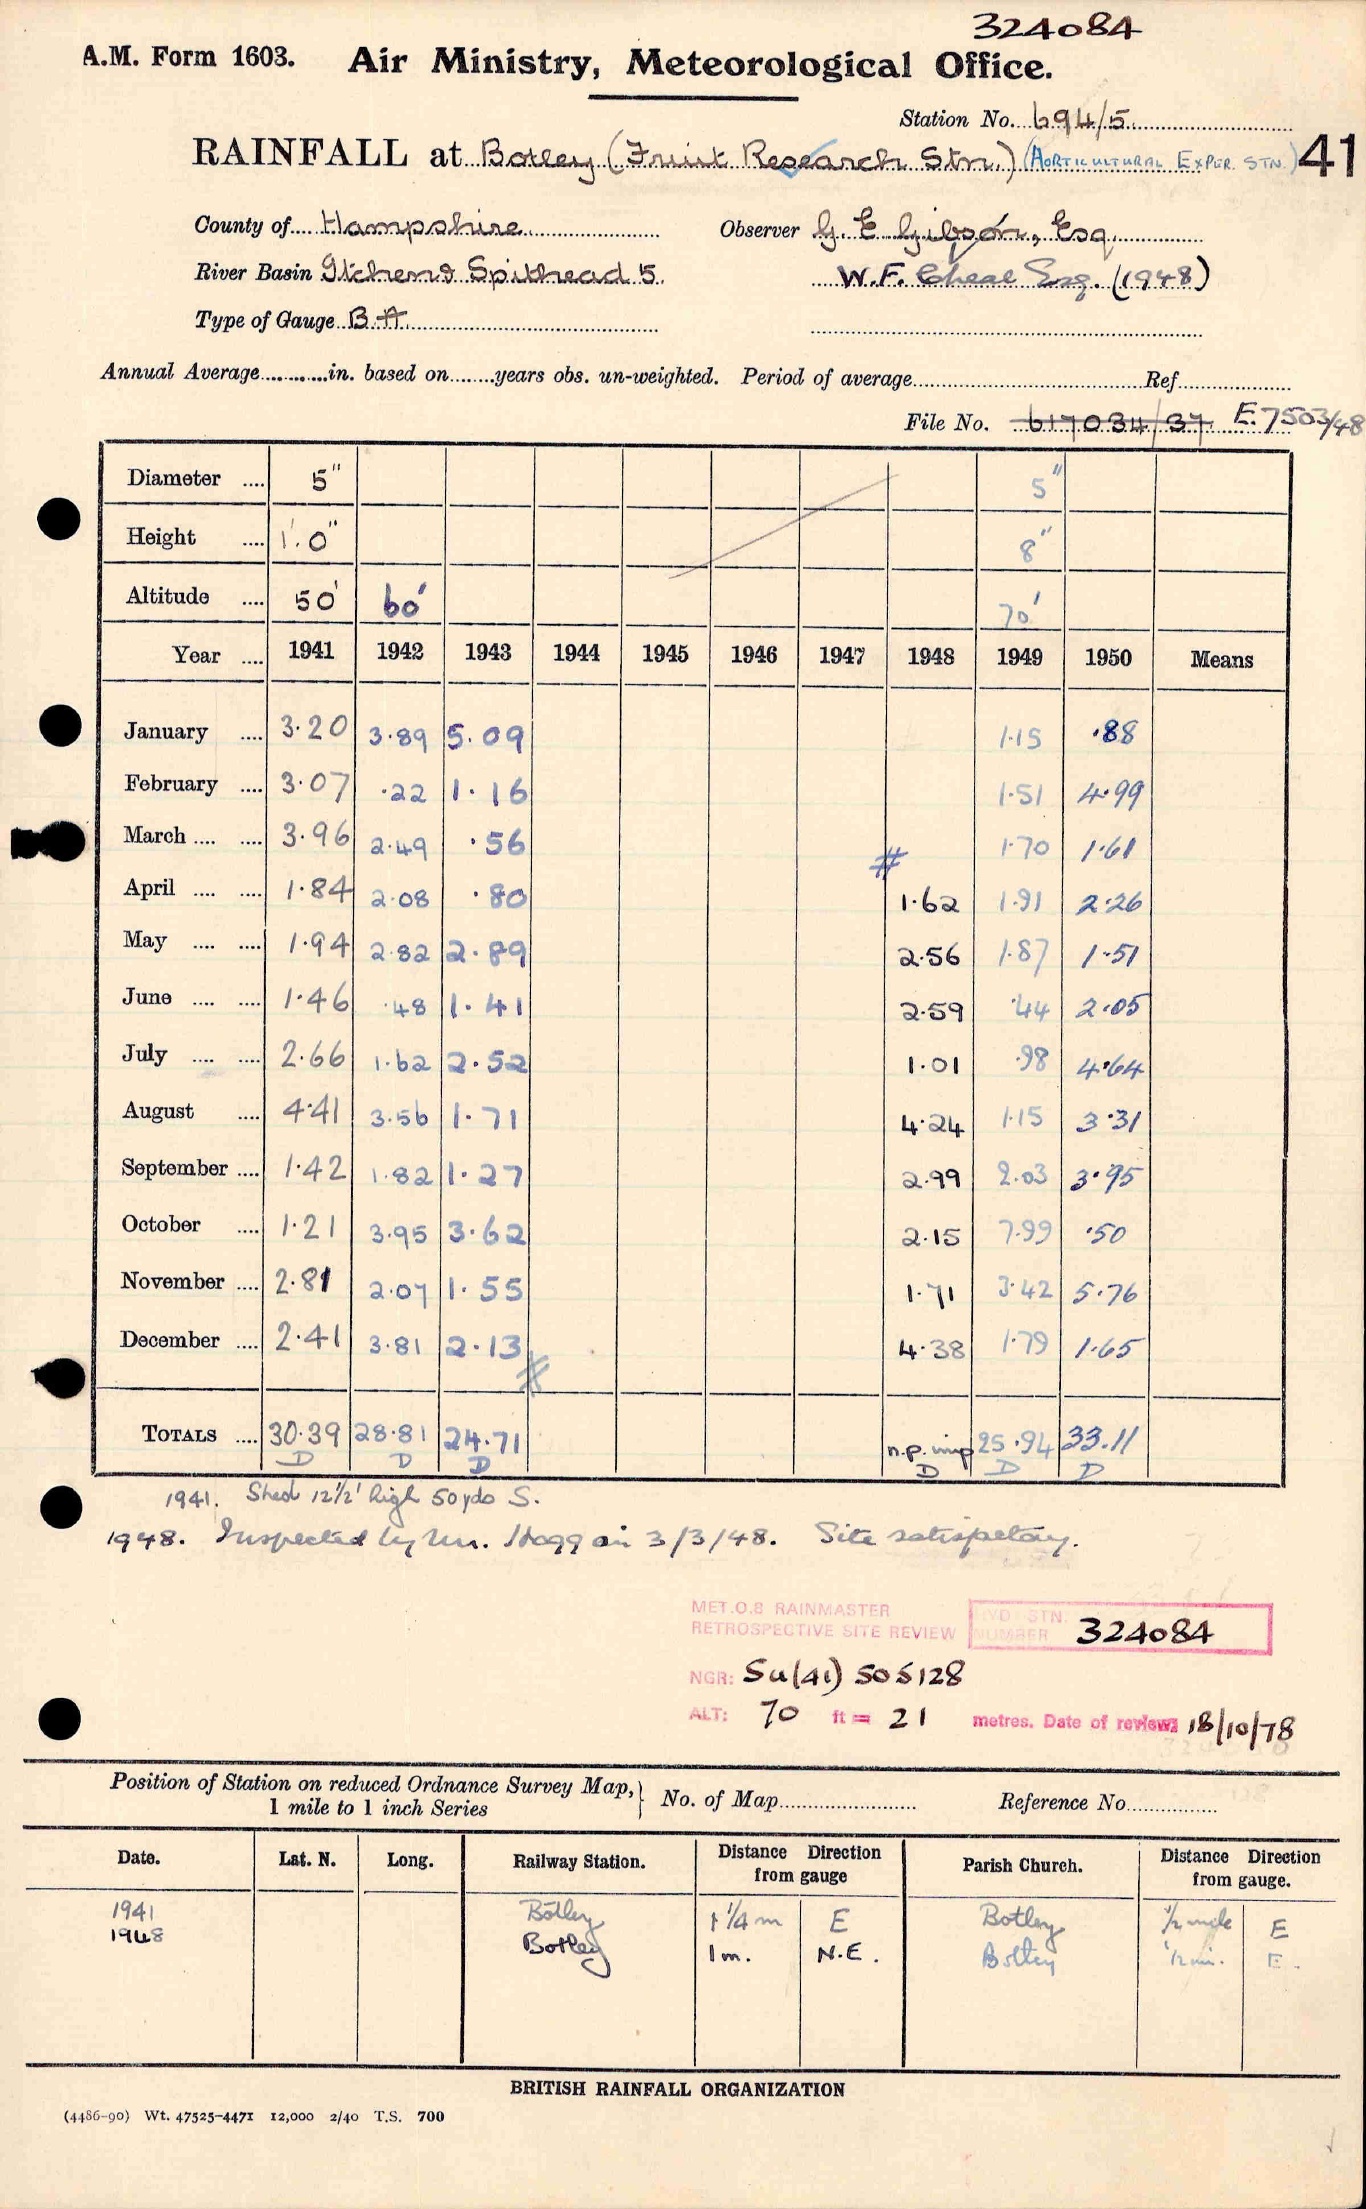 324084
A.M. Form 1603. Air Ministry, Meteorological Office.
Station No. 694/5
RAINFALL at Botley (Fruit Research Stn.) (HORTICULTURAL EXPER. STN.) 41
County of Hampshire Observer G. E. Gibson, Esq.
River Basin Itchen & Spithead 5. W.F. Cheal Esq. (1948)
Type of Gauge B.A.
Annual Average............in. based on........years obs. un-weighted. Period of average........ Ref........
File No. 617034/37 E.7503/48
Diameter .... 5" 5"
Height .... 1'.0" 8"
Altitude .... 50' 60' 70'
Year .... 1941 1942 1943 1944 1945 1946 1947 1948 1949 1950 Means
January .... 3.20 3.89 5.09 1.15 .88
February .... 3.07 .22 1.16 1.51 4.99
March .... .... 3.96 2.49 .56 # 1.70 1.61
April .... .... 1.84 2.08 .80 1.62 1.91 2.26
May .... .... 1.94 2.82 2.89 2.56 1.87 1.51
June .... .... 1.46 .48 1.41 2.59 .44 2.05
July .... .... 2.66 1.62 2.52 1.01 .98 4.64
August .... 4.41 3.56 1.71 4.24 1.15 3.31
September .... 1.42 1.82 1.27 2.99 2.03 3.95
October .... 1.21 3.95 3.62 2.15 7.99 .50
November .... 2.81 2.07 1.55 1.71 3.42 5.76
December .... 2.41 3.81 2.13 # 4.38 1.79 1.65
TOTALS .... 30.39 28.81 24.71 n.p. imp 25.94 33.11
D D D D D D
1941. Shed 12½' high 50 yds S.
1948. Inspected by Mr. Hogg on 3/3/48. Site satisfactory.
MET.O.8 RAINMASTER
RETROSPECTIVE SITE REVIEW HYD. STN. NUMBER 324084
NGR: SU(41) 505128
ALT: 70 ft = 21 metres. Date of review: 18/10/78
Position of Station on reduced Ordnance Survey Map, 1 mile to 1 inch Series } No. of Map........ Reference No........
Date. Lat. N. Long. Railway Station. Distance Direction from gauge Parish Church. Distance Direction from gauge.
1941 Botley 1¼ m E Botley ½ mile E
1948 Botley 1m. N.E. Botley ½ mi. E.
BRITISH RAINFALL ORGANIZATION
(4486-90) Wt. 47525-4471 12,000 2/40 T.S. 700